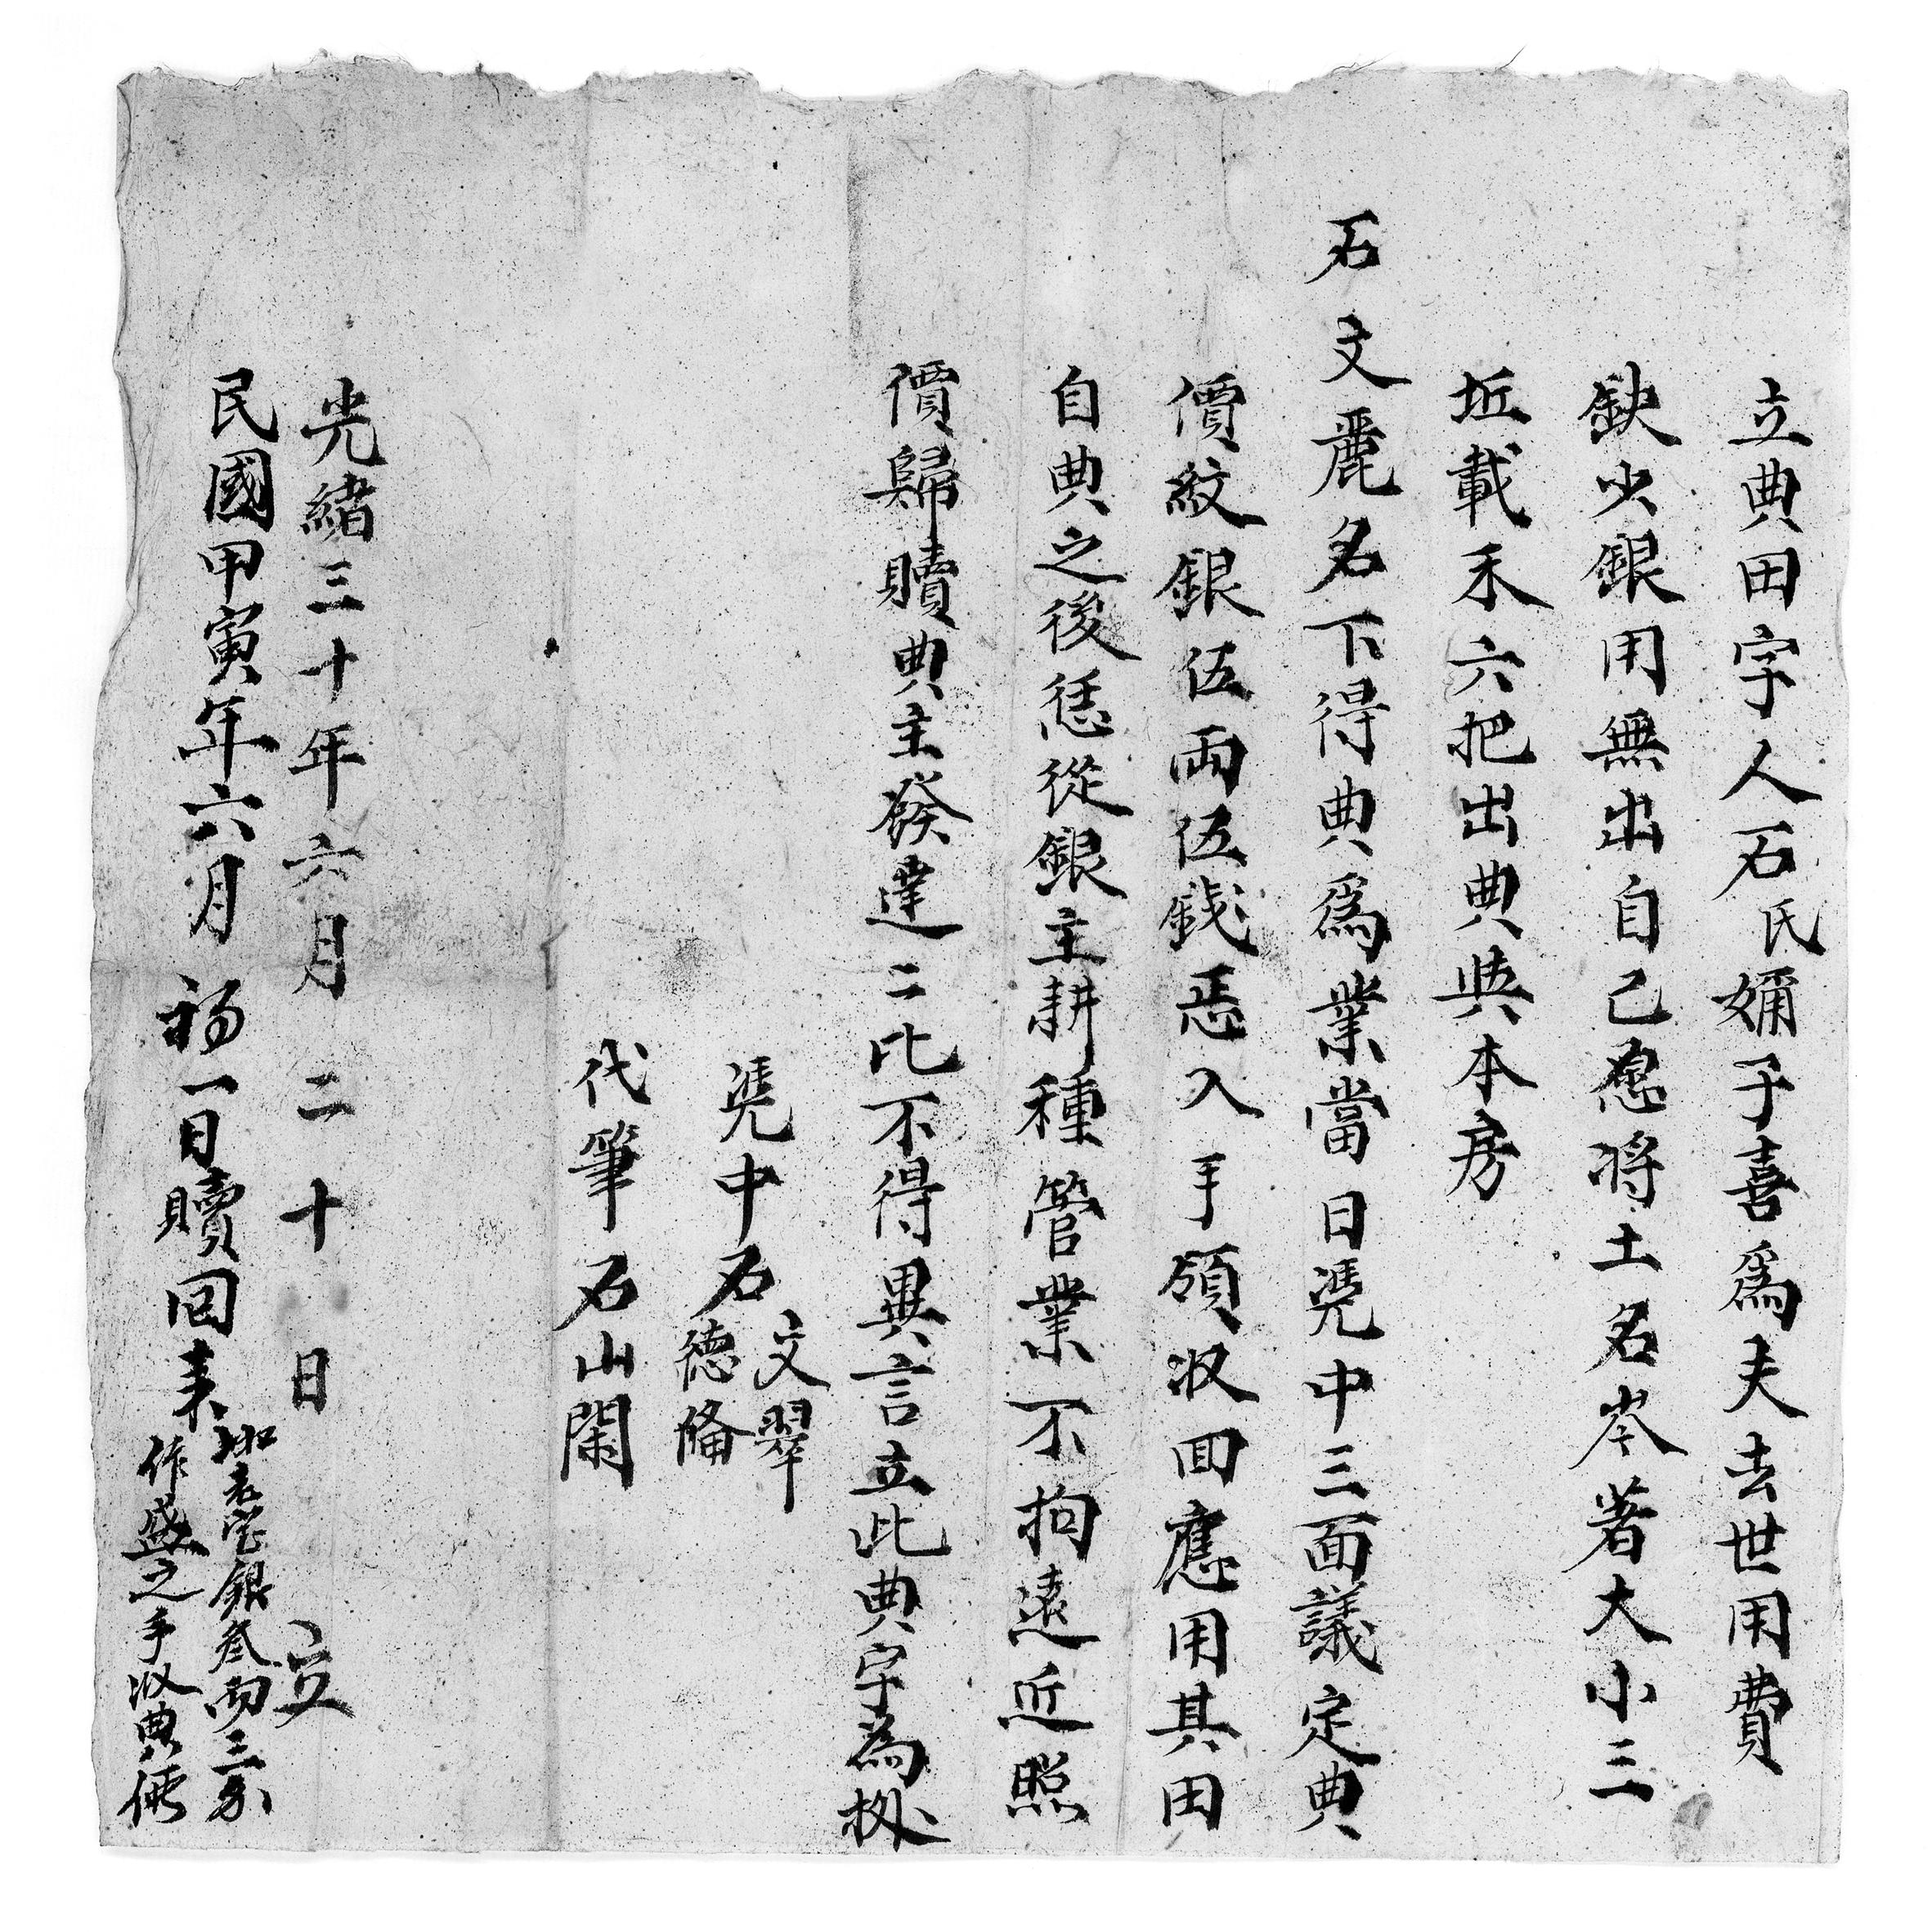 立典田字人石氏嫡子喜為夫去世用費
缺少銀用無出自己愿將土名岑著大小三
坵載禾六把出典與本房
石文麗名下得典為業當日凴中三面議定典
價紋銀伍兩伍錢恁入手領收回應用其田
自典之後恁從銀主耕種管業不拘遠近照
價歸贖典主發達二比不得異言立此典字為㨿
凴中石文翠
德脩
代筆石山閑
光緒三十年六月二十日 立
民國甲寅年六月初一日贖回來
銀叁兩三分
作盛之手收典價